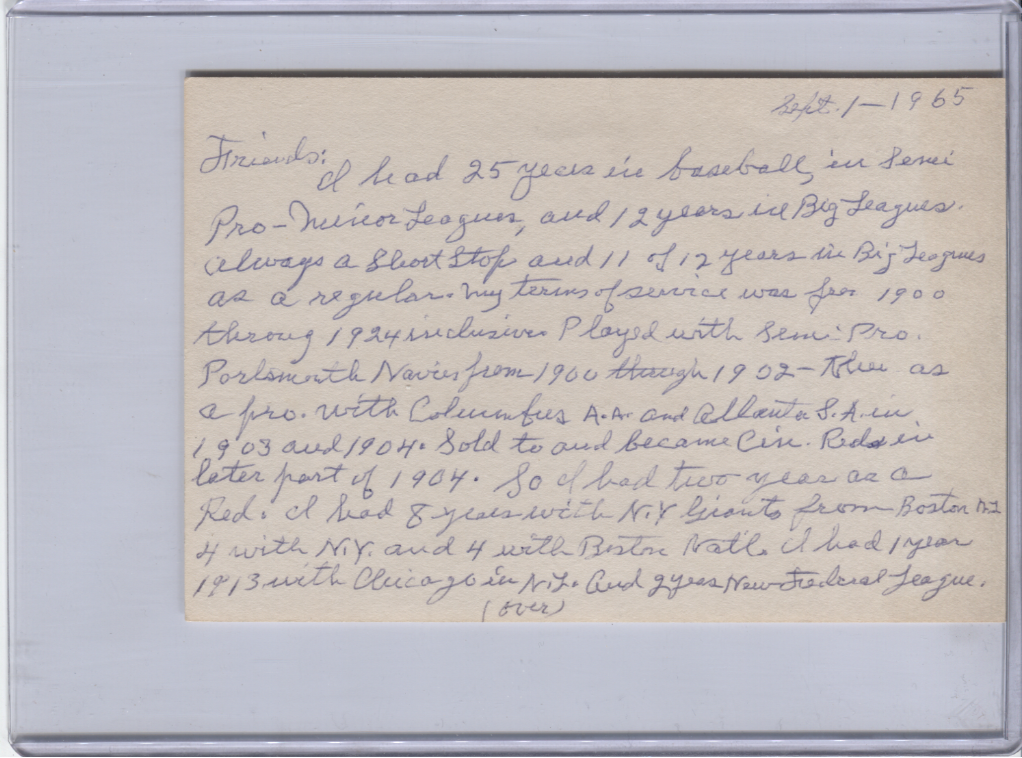 Sept. 1 - 1965
Friends:
I had 25 years in baseball, in Semi
Pro - Minor Leagues, and 12 years in Big Leagues.
Always a Short Stop and 11 of 12 years in Big Leagues
as a regular. My terms of service was for 1900
throug 1924 inclusive. Played with Semi-Pro.
Portsmouth Navies from 1900 through 1902 - then as
a pro. with Columbus A.A. and Atlanta S.A. in
1903 and 1904. Sold to and became Cin. Reds in
later part of 1904. So I had two year as a
Red. I had 8 years with N.Y Giants from Boston N.L
4 with N.Y. and 4 with Boston Natl. I had 1 year
1913 with Chicago in N.L. And 2 years New Federal League.
(over)